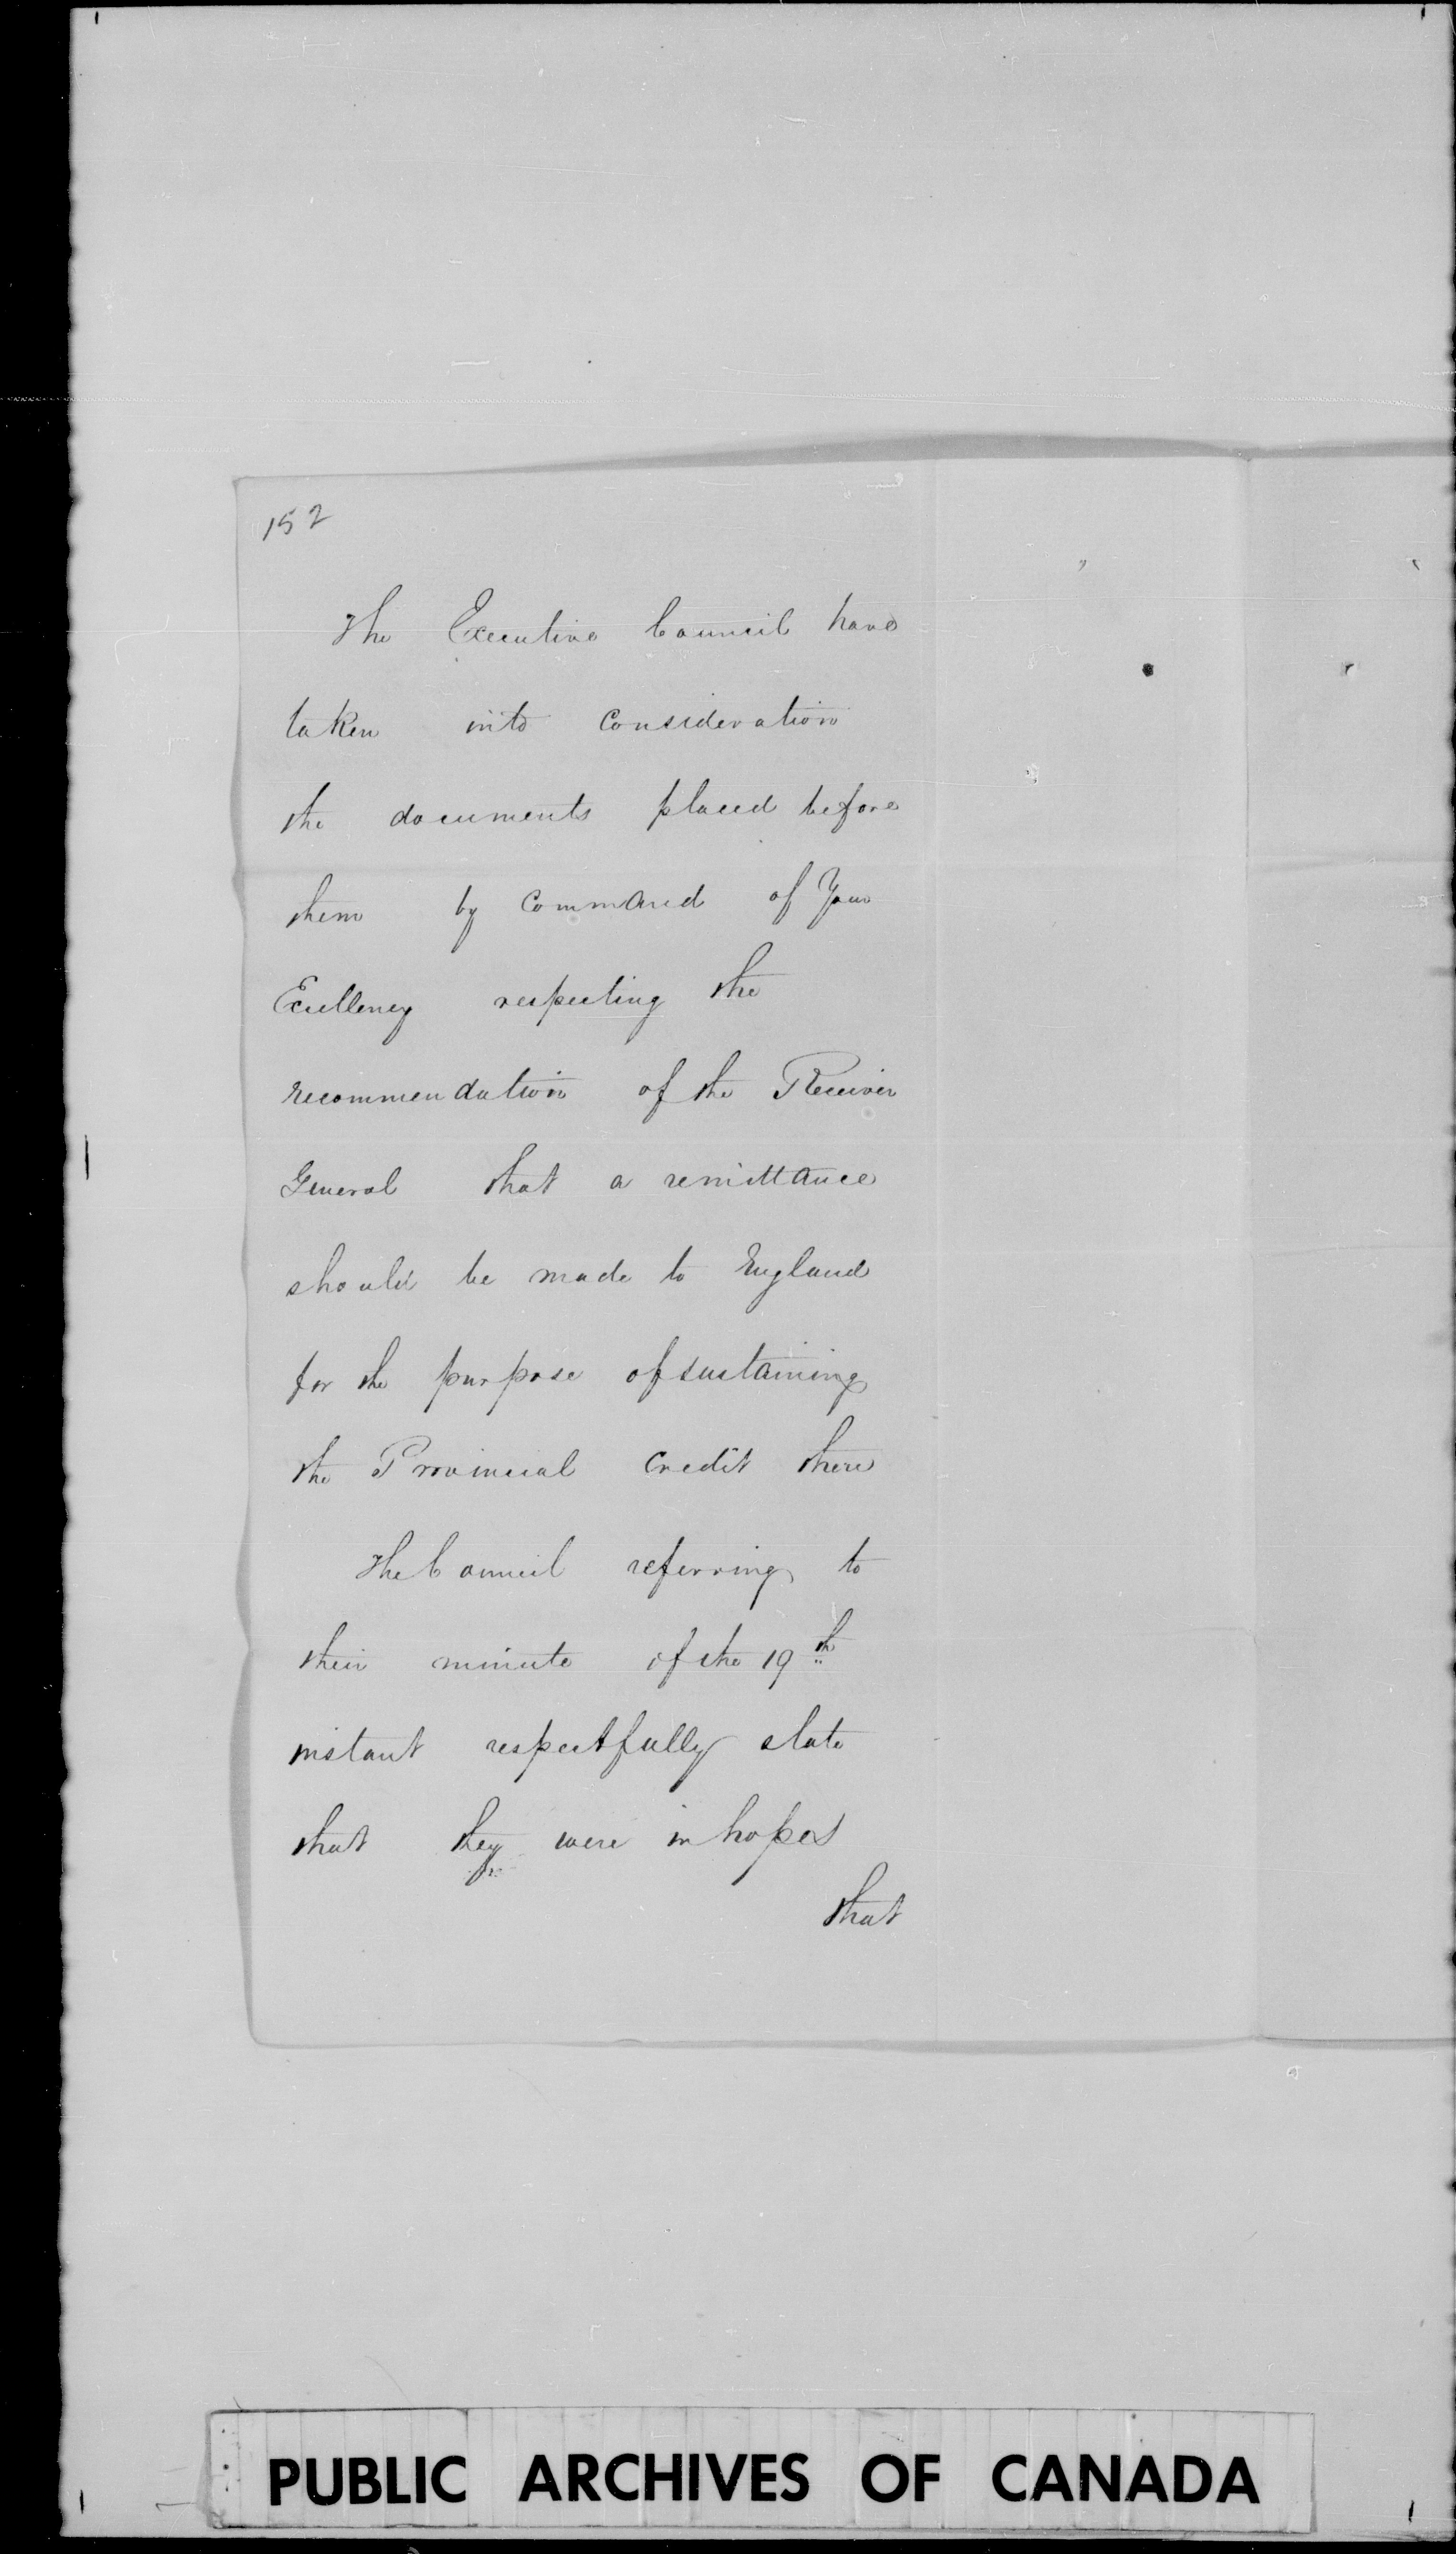 152
The Executive Council have
taken into consideration
the documents placed before
them by Command of Your
Excellency respecting the
recommendation of the Receiver
General that a remittance
should be made to England
for the purpose of sustaining
the Provincial Credit there
The Council referring to
their minute of the 19th
instant respectfully state
that they were in hopes
that
PUBLIC ARCHIVES OF CANADA